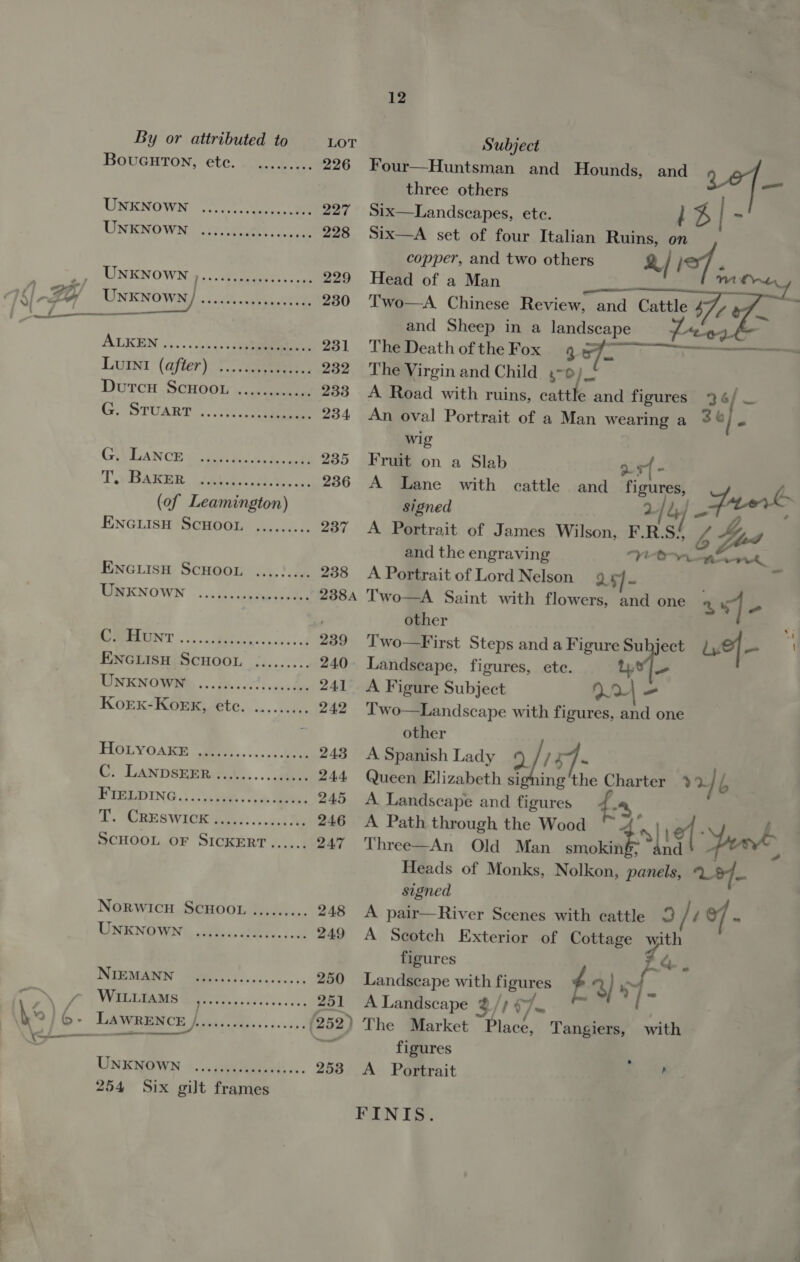 12
By or attributed to LOT Subject
BOUGHTON, etc. .......... 226 Four—Huntsman and Hounds, and
three others
UNKNOWN .................. 227 Six—Landscapes, etc.
UNKNOWN .................. 228 Six—A set of four Italian Ruins, on
copper, and two others
UNKNOWN .................. 229 Head of a Man
UNKNOWN .................. 230 Two—A Chinese Review, and Cattle
and Sheep in a landscape
ALKEN ..................... 231 The Death of the Fox
LUINI (after) ............... 232 The Virgin and Child
DUTCH SCHOOL ............ 233 A Road with ruins, cattle and figures 36/-
G. STUART .................. 234 An oval Portrait of a Man wearing a 36/-
wig
G. LANCE .................. 235 Fruit on a Slab
T. BAKER .................. 236 A Lane with cattle and figures,
(of Leamington) signed
ENGLISH SCHOOL ......... 237 A Portrait of James Wilson, F.R.S.,
and the engraving
ENGLISH SCHOOL ......... 238 A Portrait of Lord Nelson 25/-
UNKNOWN .................. 238A Two—A Saint with flowers, and one
other
C. HUNT ..................... 239 Two—First Steps and a Figure Subject
ENGLISH SCHOOL ......... 240 Landscape, figures, etc.
UNKNOWN .................. 241 A Figure Subject
KOEK-KOEK, etc. ......... 242 Two—Landscape with figures, and one
other
HOLYOAKE .................. 243 A Spanish Lady
C. LANDSEER ............... 244 Queen Elizabeth sighing the Charter
FIELDING ..................... 245 A Landscape and figures
T. CRESWICK ............... 246 A Path through the Wood
SCHOOL OF SICKERT ...... 247 Three—An Old Man smoking, and
Heads of Monks, Nolkon, panels,
signed
NORWICH SCHOOL ......... 248 A pair—River Scenes with cattle
UNKNOWN .................. 249 A Scotch Exterior of Cottage with
figures
NIEMANN .................. 250 Landscape with figures
WILLIAMS .................. 251 A Landscape
LAWRENCE .................. 252 The Market Place, Tangiers, with
figures
UNKNOWN .................. 253 A Portrait
254 Six gilt frames
FINIS.